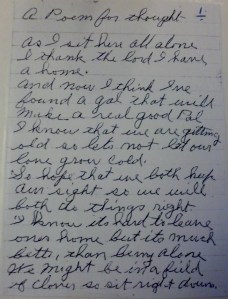 A Poem for thought 1
As I sit here all alone
I thank the lord I have
a home.
And now I think I've
found a gal that will
make a real good Pal
I know that we are getting
old so lets not let our
love grow cold.
So hope that we both keep
our sight so we will
both do things right
I know its hard to leave
ones home but its much
better than being alone
We might be in a field
of clover so sit right down.